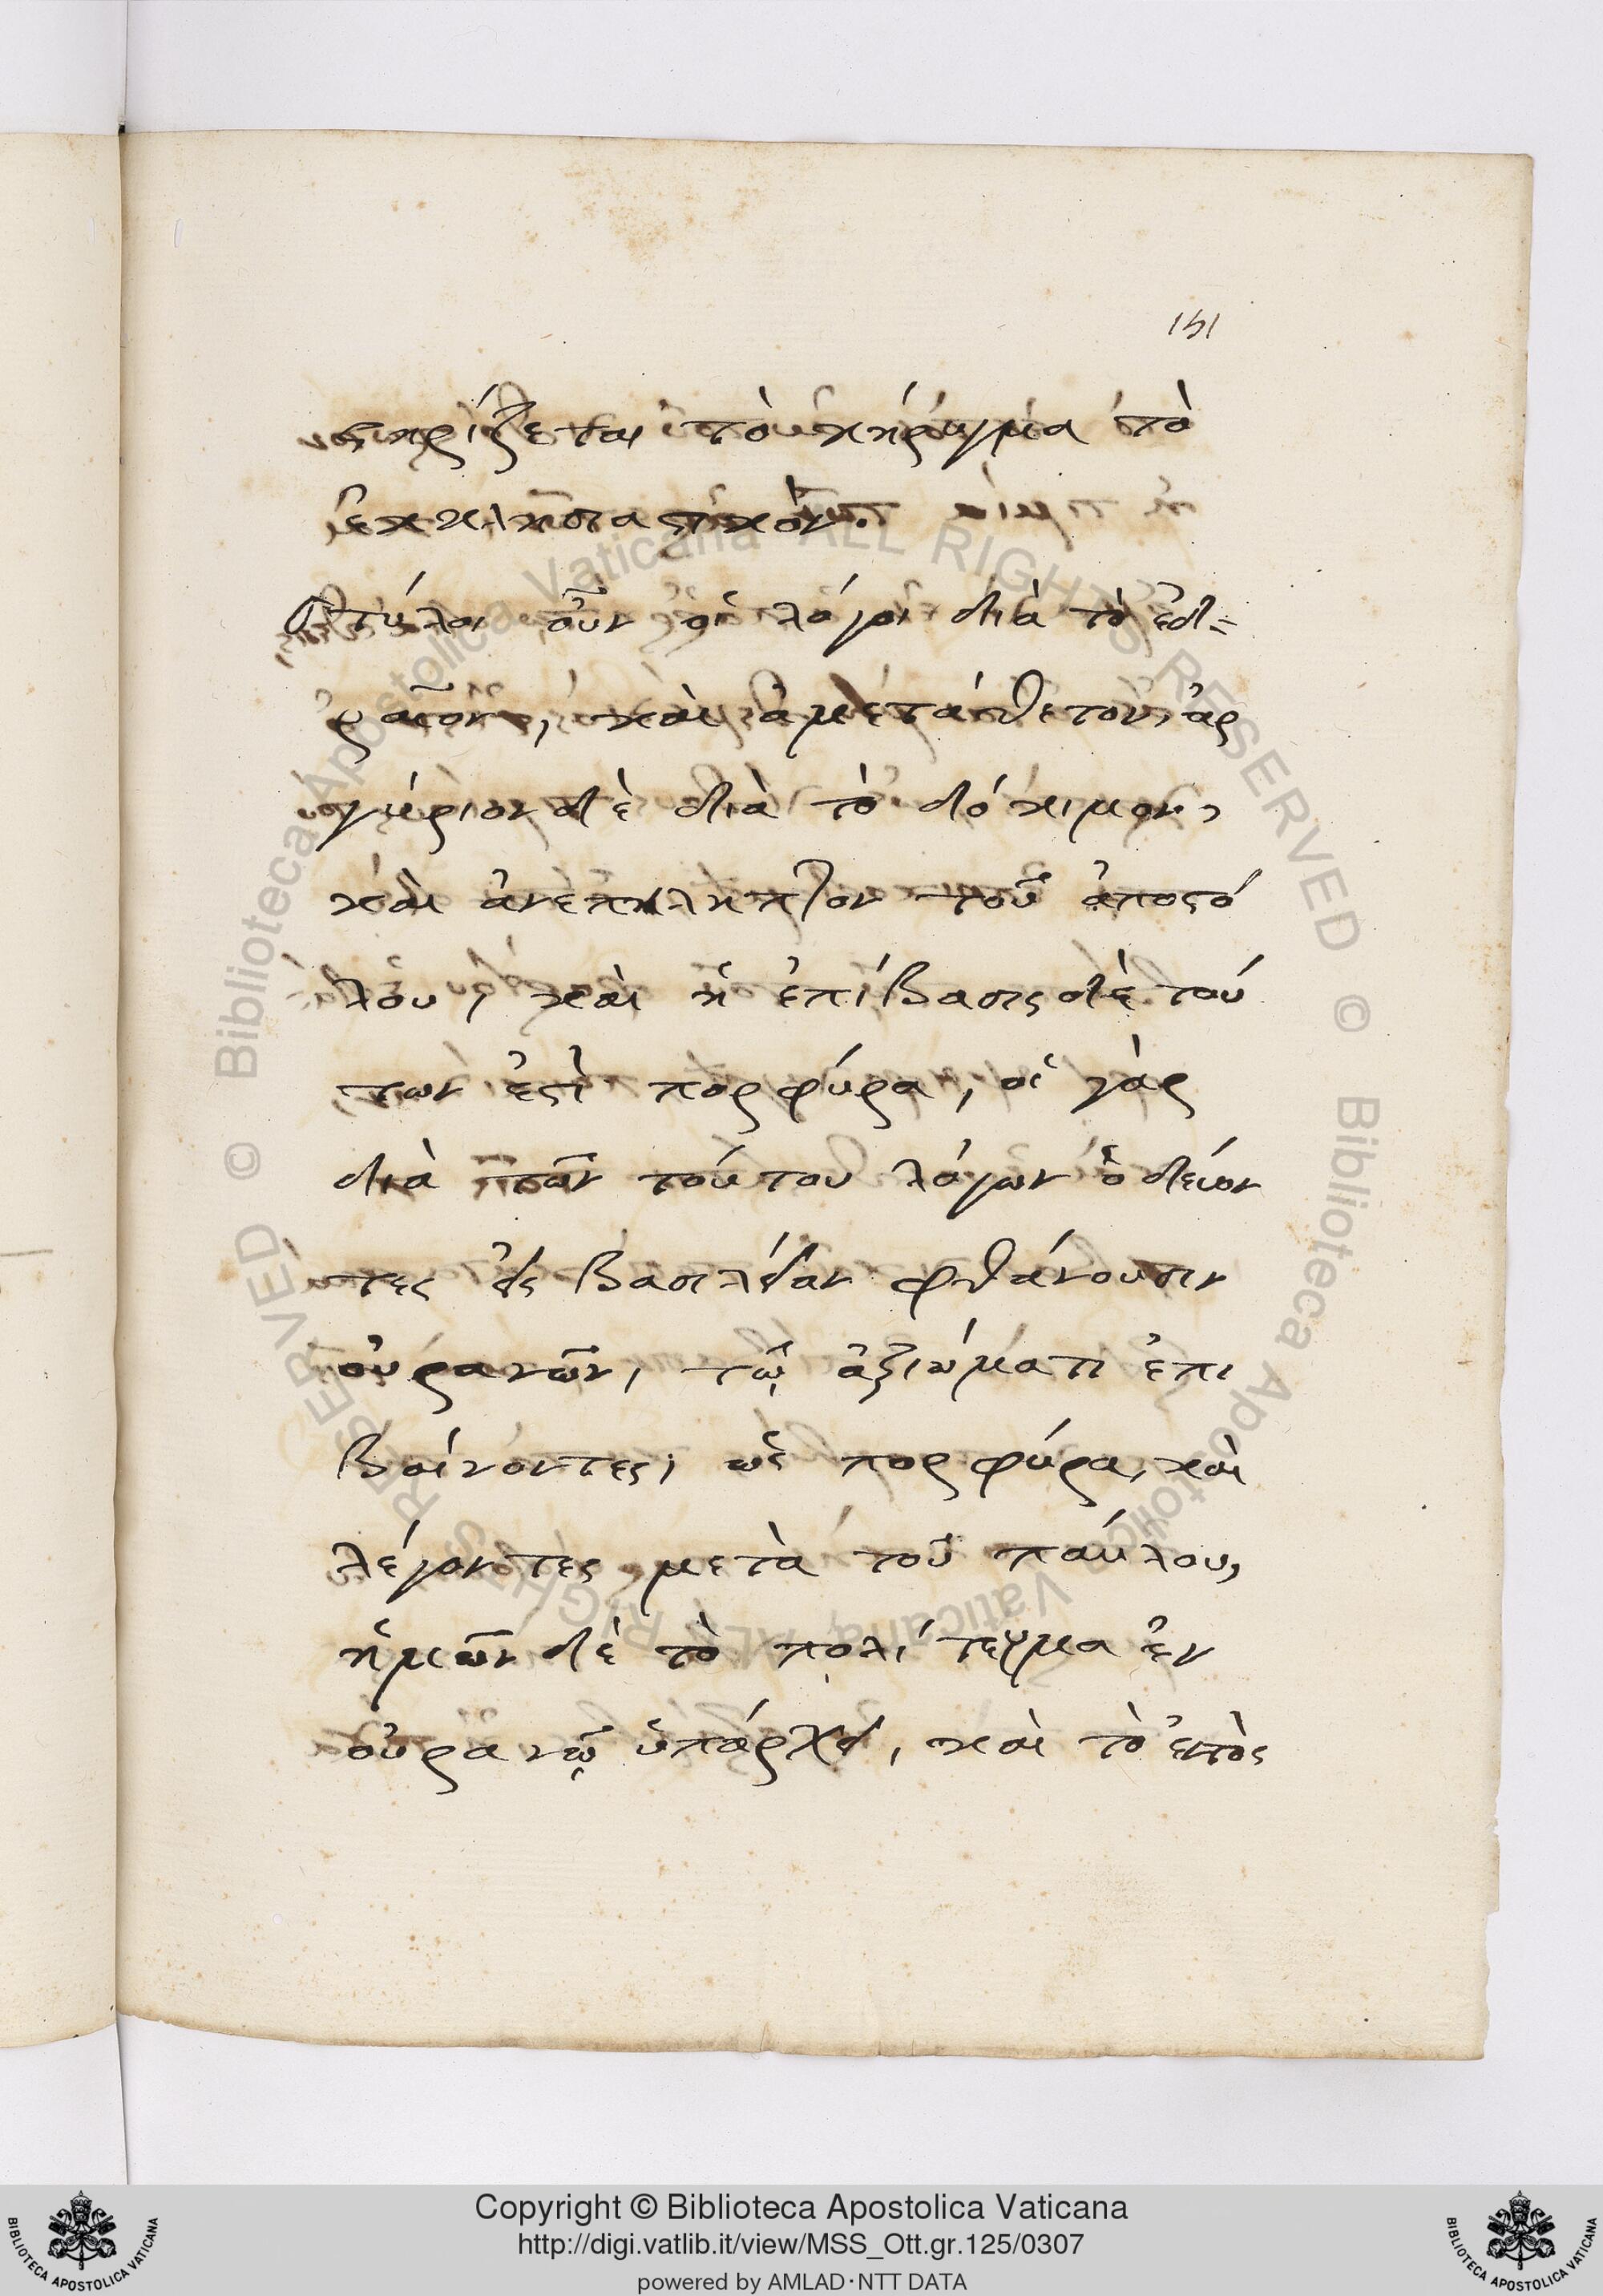 151
στηρίζεται τὸ κήρυγμα τὸ
ἐκκλησιαστικόν.
Στύλοι οὖν οἱ λόγοι διὰ τὸ ἐδ=
ραῖον, καὶ ἀμετάθετον, ἀρ
γύριον δὲ διὰ τὸ δόκιμον,
καὶ ἀνεπίληπτον τοῦ ἀποστό
λου, καὶ ἡ ἐπίβασις δὲ τού
των ἐστὶ πορφύρα, οἱ γὰρ
διὰ τῶν τούτου λόγων ὁδεύον
τες εἰς βασιλείαν φθάνουσιν
οὐρανῶν, τῷ ἀξιώματι ἐπι
βαίνοντες, ὡς πορφύρα, καὶ
λέγοντες μετὰ τοῦ παύλου,
ἡμῶν δὲ τὸ πολίτευμα ἐν
οὐρανῷ ὑπάρχει, καὶ τὸ ἐντὸς
© Biblioteca Apostolica Vaticana ALL RIGHTS RESERVED © Biblioteca Apostolica Vaticana ALL RIGHTS RESERVED
Copyright © Biblioteca Apostolica Vaticana
http://digi.vatlib.it/view/MSS_Ott.gr.125/0307
powered by AMLAD·NTT DATA
BIBLIOTECA APOSTOLICA VATICANA
BIBLIOTECA APOSTOLICA VATICANA